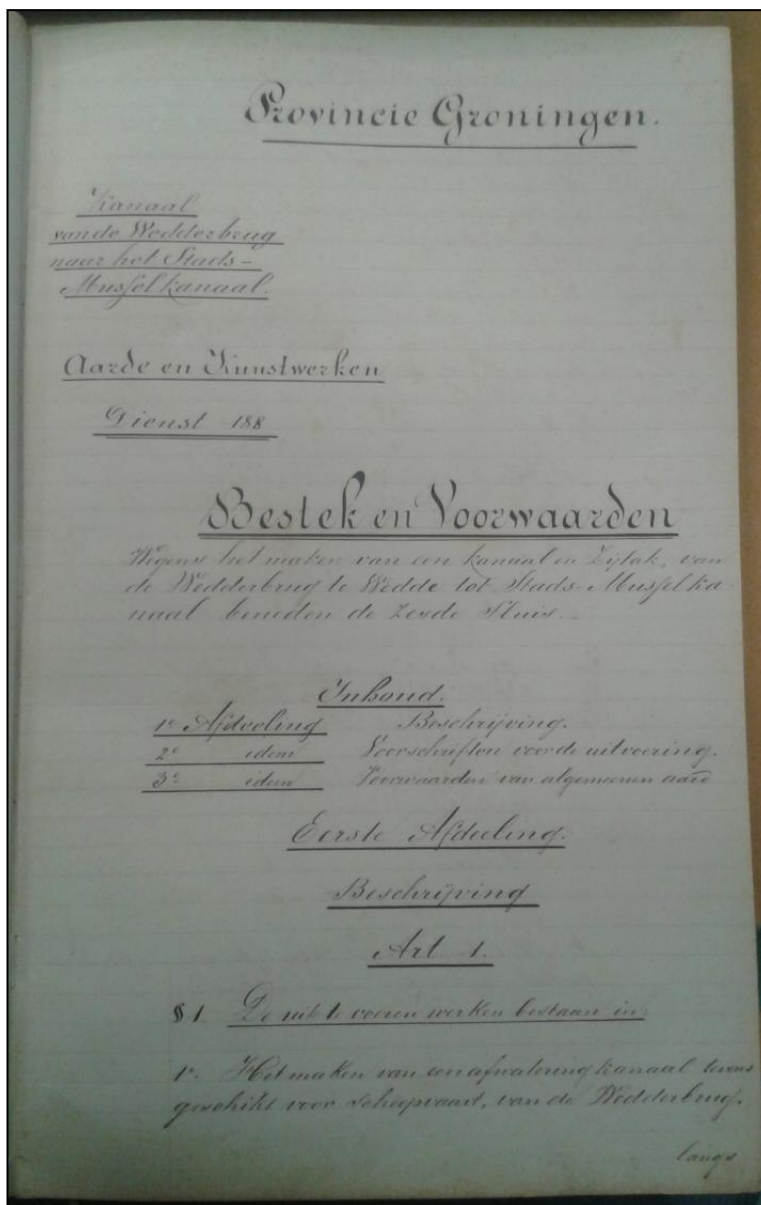 Provincie Groningen.
Kanaal
van de Wedderbrug
naar het Stads-
Musselkanaal.
Aarde en Kunstwerken
Dienst 188
Bestek en Voorwaarden
Wegens het maken van een kanaal en Zijtak, van
de Wedderbrug te Wedde tot Stads-Musselka-
naal beneden de Zesde Sluis.
Inhoud.
1e Afdeeling Beschrijving.
2e idem Voorschriften voor de uitvoering.
3e idem Voorwaarden van algemeenen aard
Eerste Afdeeling.
Beschrijving
Art 1.
§ 1. De uit te voeren werken bestaan in:
1e. Het maken van een afwatering kanaal tevens
geschikt voor scheepvaart, van de Wedderbrug,
langs